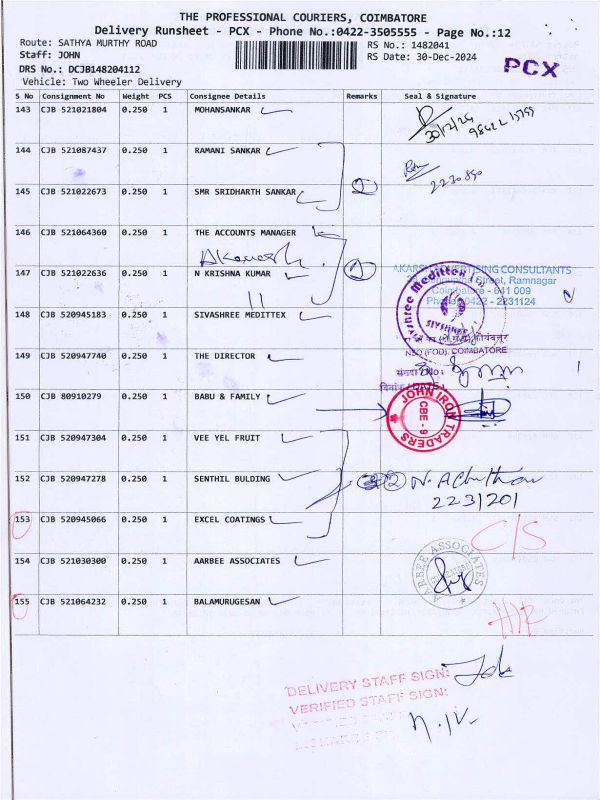 THE PROFESSIONAL COURIERS, COIMBATORE
Delivery Runsheet - PCX - Phone No.:0422-3505555 - Page No.:12
Route: SATHYA MURTHY ROAD
RS No.: 1482041
Staff: JOHN
RS Date: 30-Dec-2024
PCX
DRS No.: DCJB148204112
Vehicle: Two Wheeler Delivery
S No Consignment No Weight PCS Consignee Details Remarks Seal & Signature
143 CJB 521021804 0.250 1 MOHANSANKAR
30/12/24
144 CJB 521087437 0.250 1 RAMANI SANKAR
2230850
145 CJB 521022673 0.250 1 SMR SRIDHARTH SANKAR
146 CJB 521064360 0.250 1 THE ACCOUNTS MANAGER
AKARSH ADVERTISING CONSULTANTS
147 CJB 521022636 0.250 1 N KRISHNA KUMAR
Street, Ramnagar
Coimbatore - 641 009
Phone: 0422 - 2231124
Sivshree Medittex
148 CJB 520945183 0.250 1 SIVASHREE MEDITTEX
NSO (FOD), COIMBATORE
149 CJB 520947740 0.250 1 THE DIRECTOR
150 CJB 80910279 0.250 1 BABU & FAMILY
JOHN IRON TRADERS
CBE - 9
151 CJB 520947304 0.250 1 VEE YEL FRUIT
152 CJB 520947278 0.250 1 SENTHIL BULDING
2231201
153 CJB 520945066 0.250 1 EXCEL COATINGS
C/S
154 CJB 521030300 0.250 1 AARBEE ASSOCIATES
AARBEE ASSOCIATES
155 CJB 521064232 0.250 1 BALAMURUGESAN
DELIVERY STAFF SIGN:
VERIFIED STAFF SIGN: